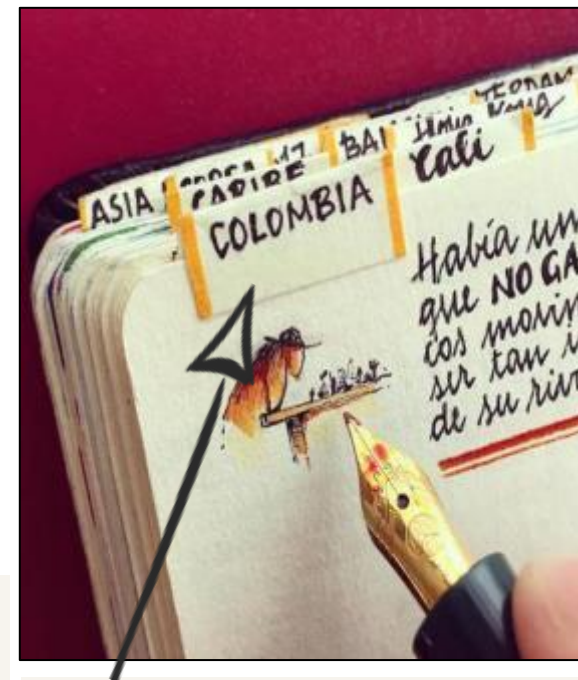 ASIA
CARIBE
COLOMBIA
BAI
Cali
Había un
que NO GA
cos movin
ser tan i
de su riv